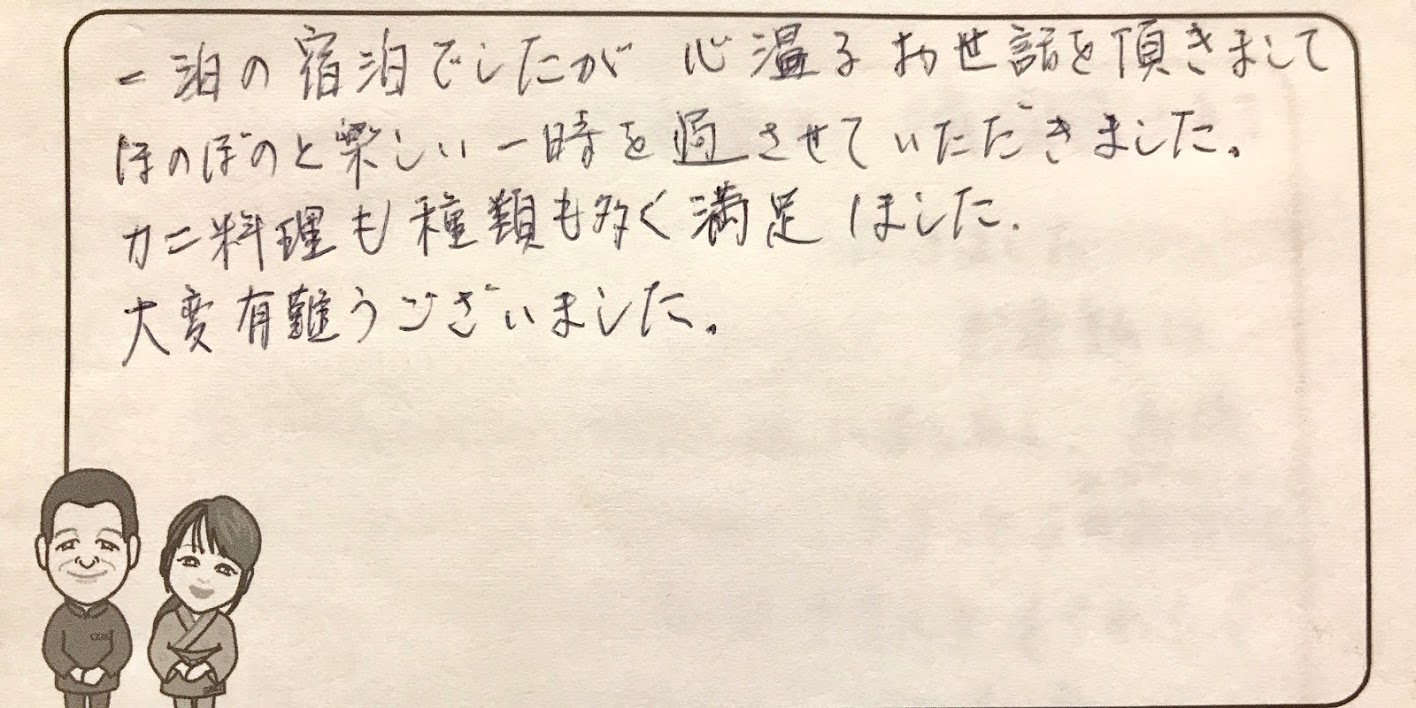 一泊の宿泊でしたが 心温るお世話を頂きまして
ほのぼのと楽しい一時を過させていただきました。
カニ料理も種類も多く満足しました.
大変有難うございました。